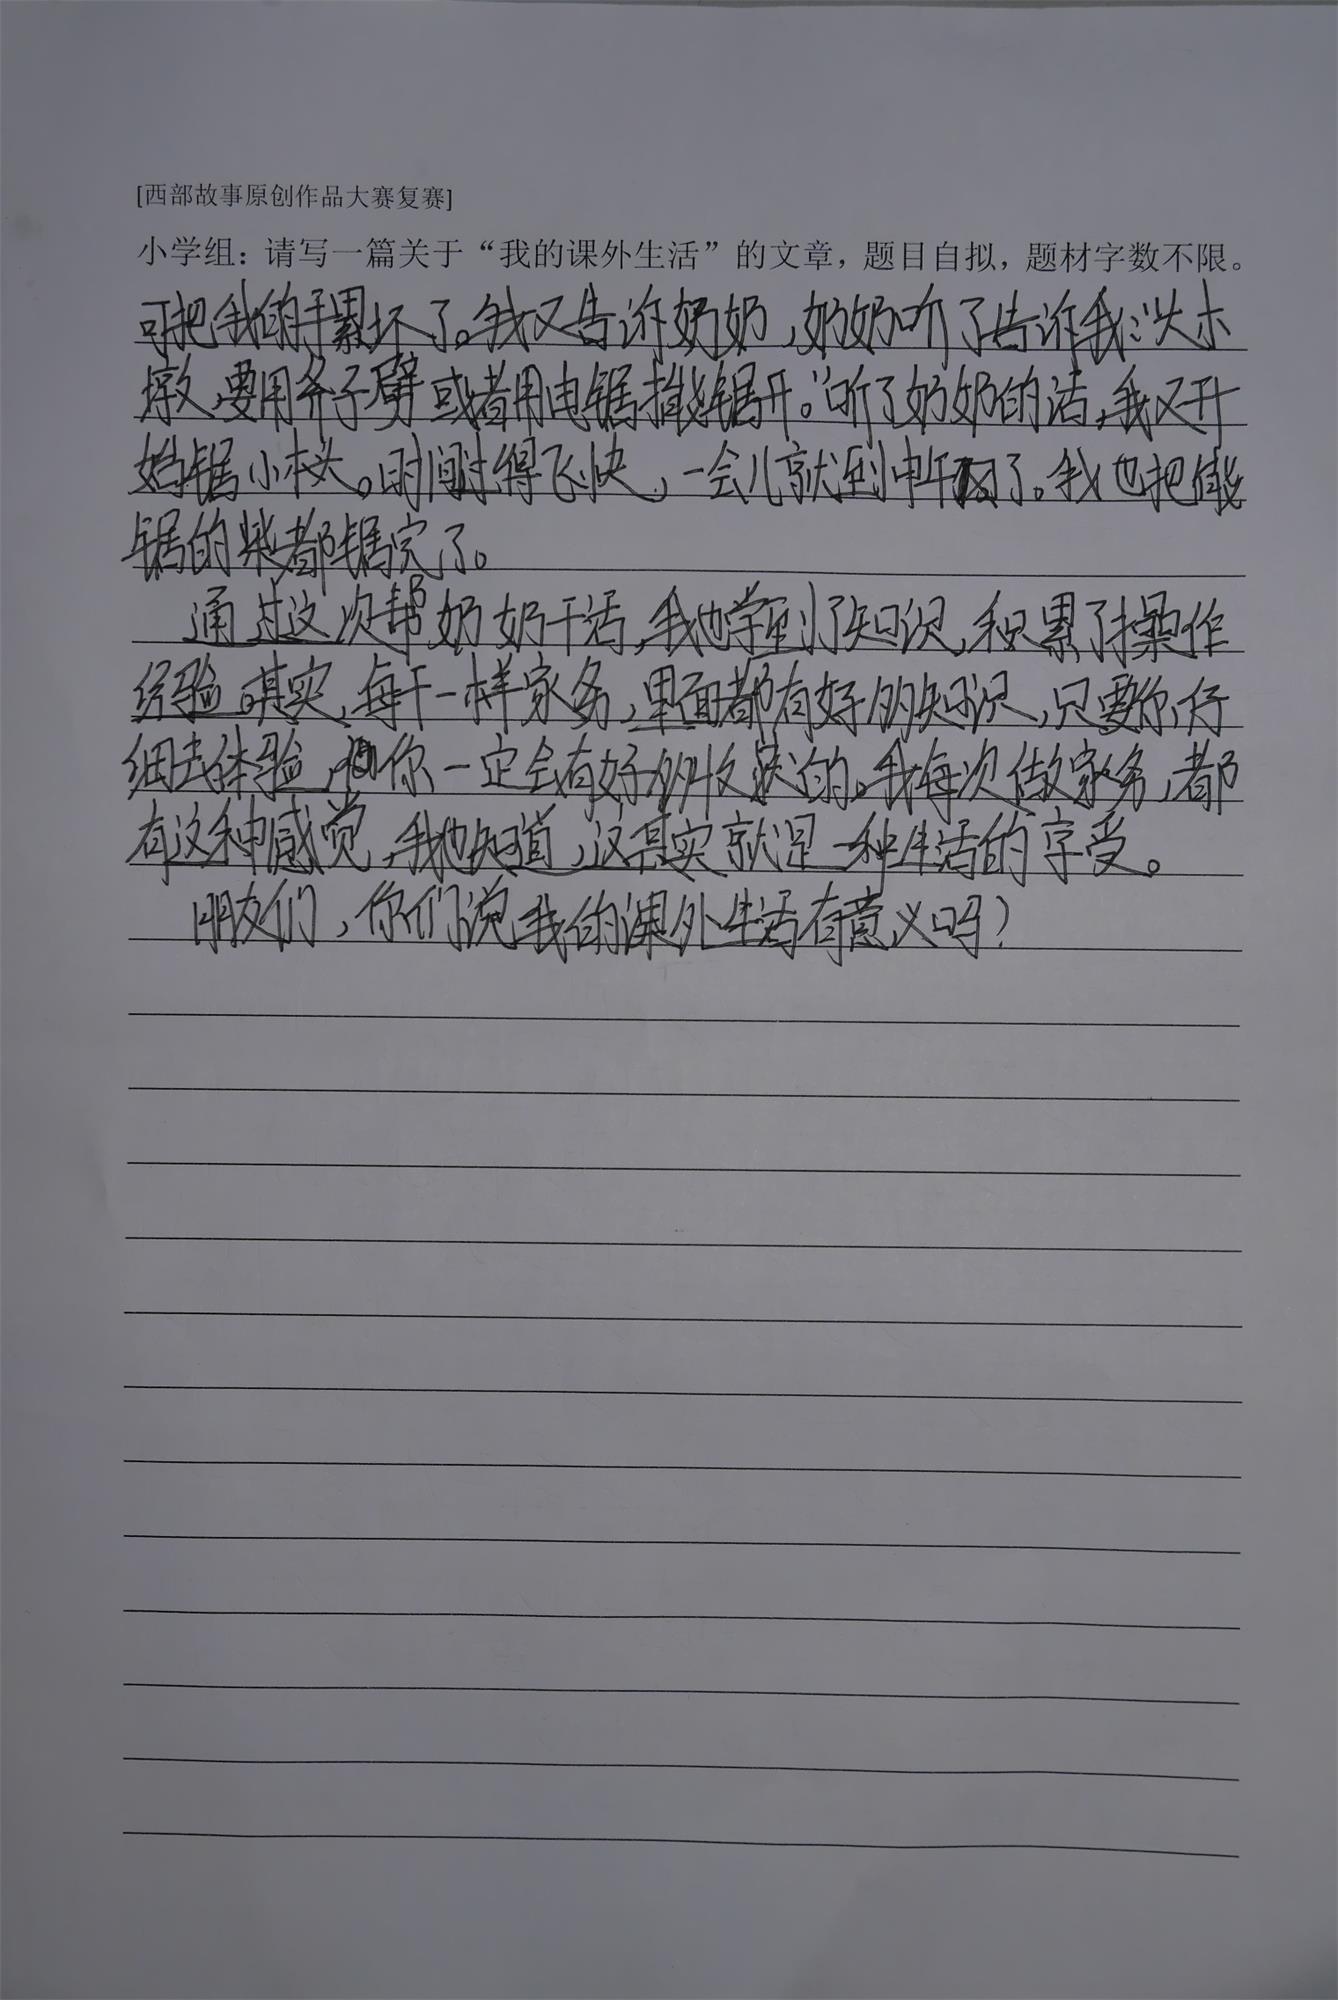 [西部故事原创作品大赛复赛]
小学组：请写一篇关于“我的课外生活”的文章，题目自拟，题材字数不限。
可把我的手累坏了。我又告诉奶奶，奶奶听了告诉我：“大木
墩，要用斧子劈或者用电锯才能锯开。”听了奶奶的话，我又开
始锯小木头。时间过得飞快，一会儿就到中午了。我也把能
锯的柴都锯完了。
通过这次帮奶奶干活，我也学到了知识，积累了操作
经验。其实，每干一样家务，里面都有好多知识，只要你仔
细去体验，你一定会有好多收获的。我每次做家务，都
有这种感觉，我也知道，这其实就是一种生活的享受。
朋友们，你们说我的课外生活有意义吗？